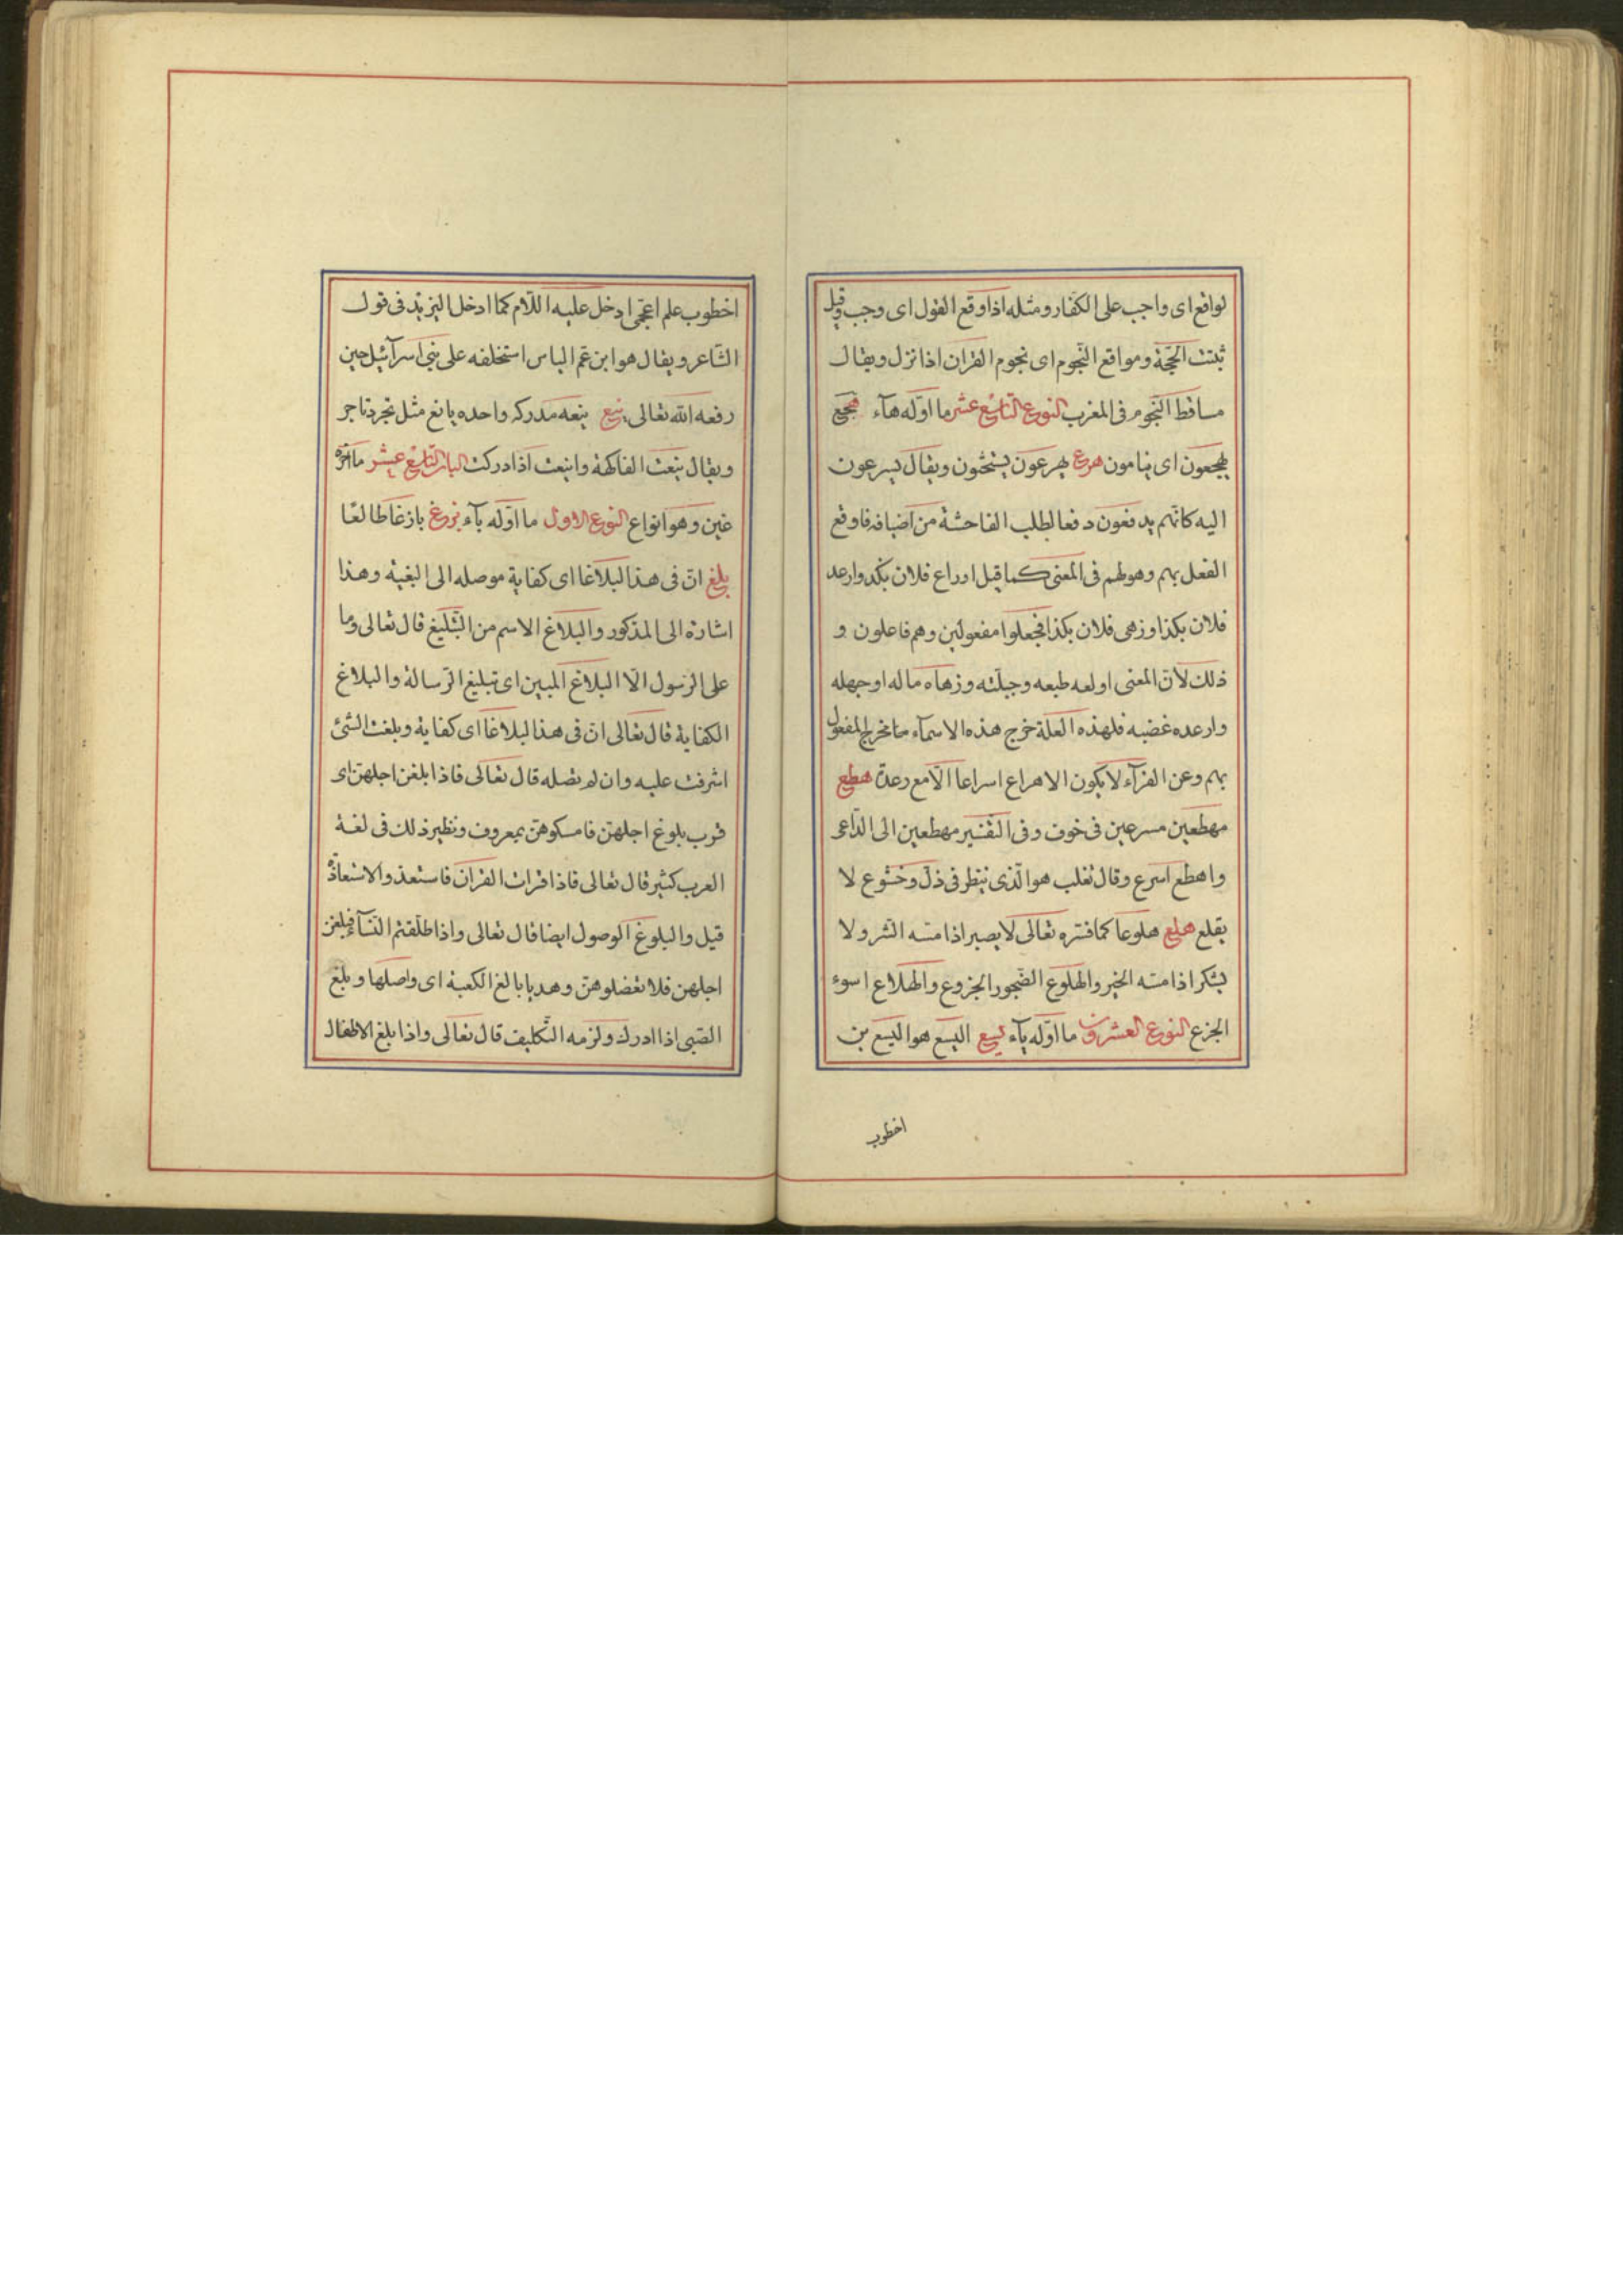 لواقع اى واجب على الكفّار ومثله اذا وقع القول اى وجب وقيل
ثبتت الحجّة ومواقع النّجوم اى نجوم القرآن اذا نزل ويقال
مساقط النّجوم فى المغرب النوع التاسع عشر ما اوّله هآء هجع
يهجعون اى ينامون هرع يهرعون يستحثون ويقال يسرعون
اليه كانّهم يدفعون دفعا لطلب الفاحشة من اضيافه فاوقع
الفعل بهم وهو لهم فى المعنى كما قيل اوراع فلان بكذ وارعد
فلان بكذا وزهى فلان بكذا فجعلوا مفعولين وهم فاعلون و
ذلك لأنّ المعنى اولعه طبعه وجبلّته وزهاه ماله او جهله
وارعده غضبه فلهذه العلّة خرج هذه الاسمآء مخرج المفعول
بهم وعن الفرّآء لا يكون الاهراع اسراعا الّا مع رعدة هطع
مهطعين مسرعين فى خوف وفى التّفسير مهطعين الى الدّاعى
واهطع اسرع وقال ثعلب هو الّذى ينظر فى ذلّ وخشوع لا
يقلع هلع هلوعا كما فسّره تعالى لا يصير اذا مسّه الشّر ولا
يشكر اذا مسّه الخير والهلوع الضّجور الجزوع والهلاع اسوء
الجزع النوع العشرون ما اوّله يآء يسع اليسع هو اليسع بن
اخطوب
اخطوب علم اعجمّى ادخل عليه اللّام كما ادخل اليزيد فى قول
الشّاعر ويقال هو ابن عمّ الياس استخلفه على بنى اسرآئيل حين
رفعه الله تعالى ينع ينعه مدركه واحده يانع مثل تجر وتاجر
ويقال ينعت الفاكهة واينعت اذا ادركت الباب التاسع عشر ما آخره
غين وهو انواع النوع الاول ما اوّله بآء بزغ بازغا طالعًا
بلغ انّ فى هذا لبلاغا اى كفاية موصله الى البغية وهذا
اشارة الى المذكور والبلاغ الاسم من التّبليغ قال تعالى وما
على الرّسول الّا البلاغ المبين اى تبليغ الرّسالة والبلاغ
الكفاية قال تعالى انّ فى هذا لبلاغا اى كفاية وبلغت الشّئ
اشرفت عليه وان لم تصله قال تعالى فاذا بلغن اجلهنّ اى
قرب بلوغ اجلهنّ فامسكوهنّ بمعروف ونظير ذلك فى لغة
العرب كثير قال تعالى فاذا قرات القرآن فاستعذ والاستعاذة
قيل والبلوغ الوصول ايضا قال تعالى واذا طلّقتم النّسآء فبلغن
اجلهن فلا تعضلوهنّ وهديا بالغ الكعبة اى واصلها وبلغ
الصّبى اذا ادرك ولزمه التّكليف قال تعالى واذا بلغ الاطفال